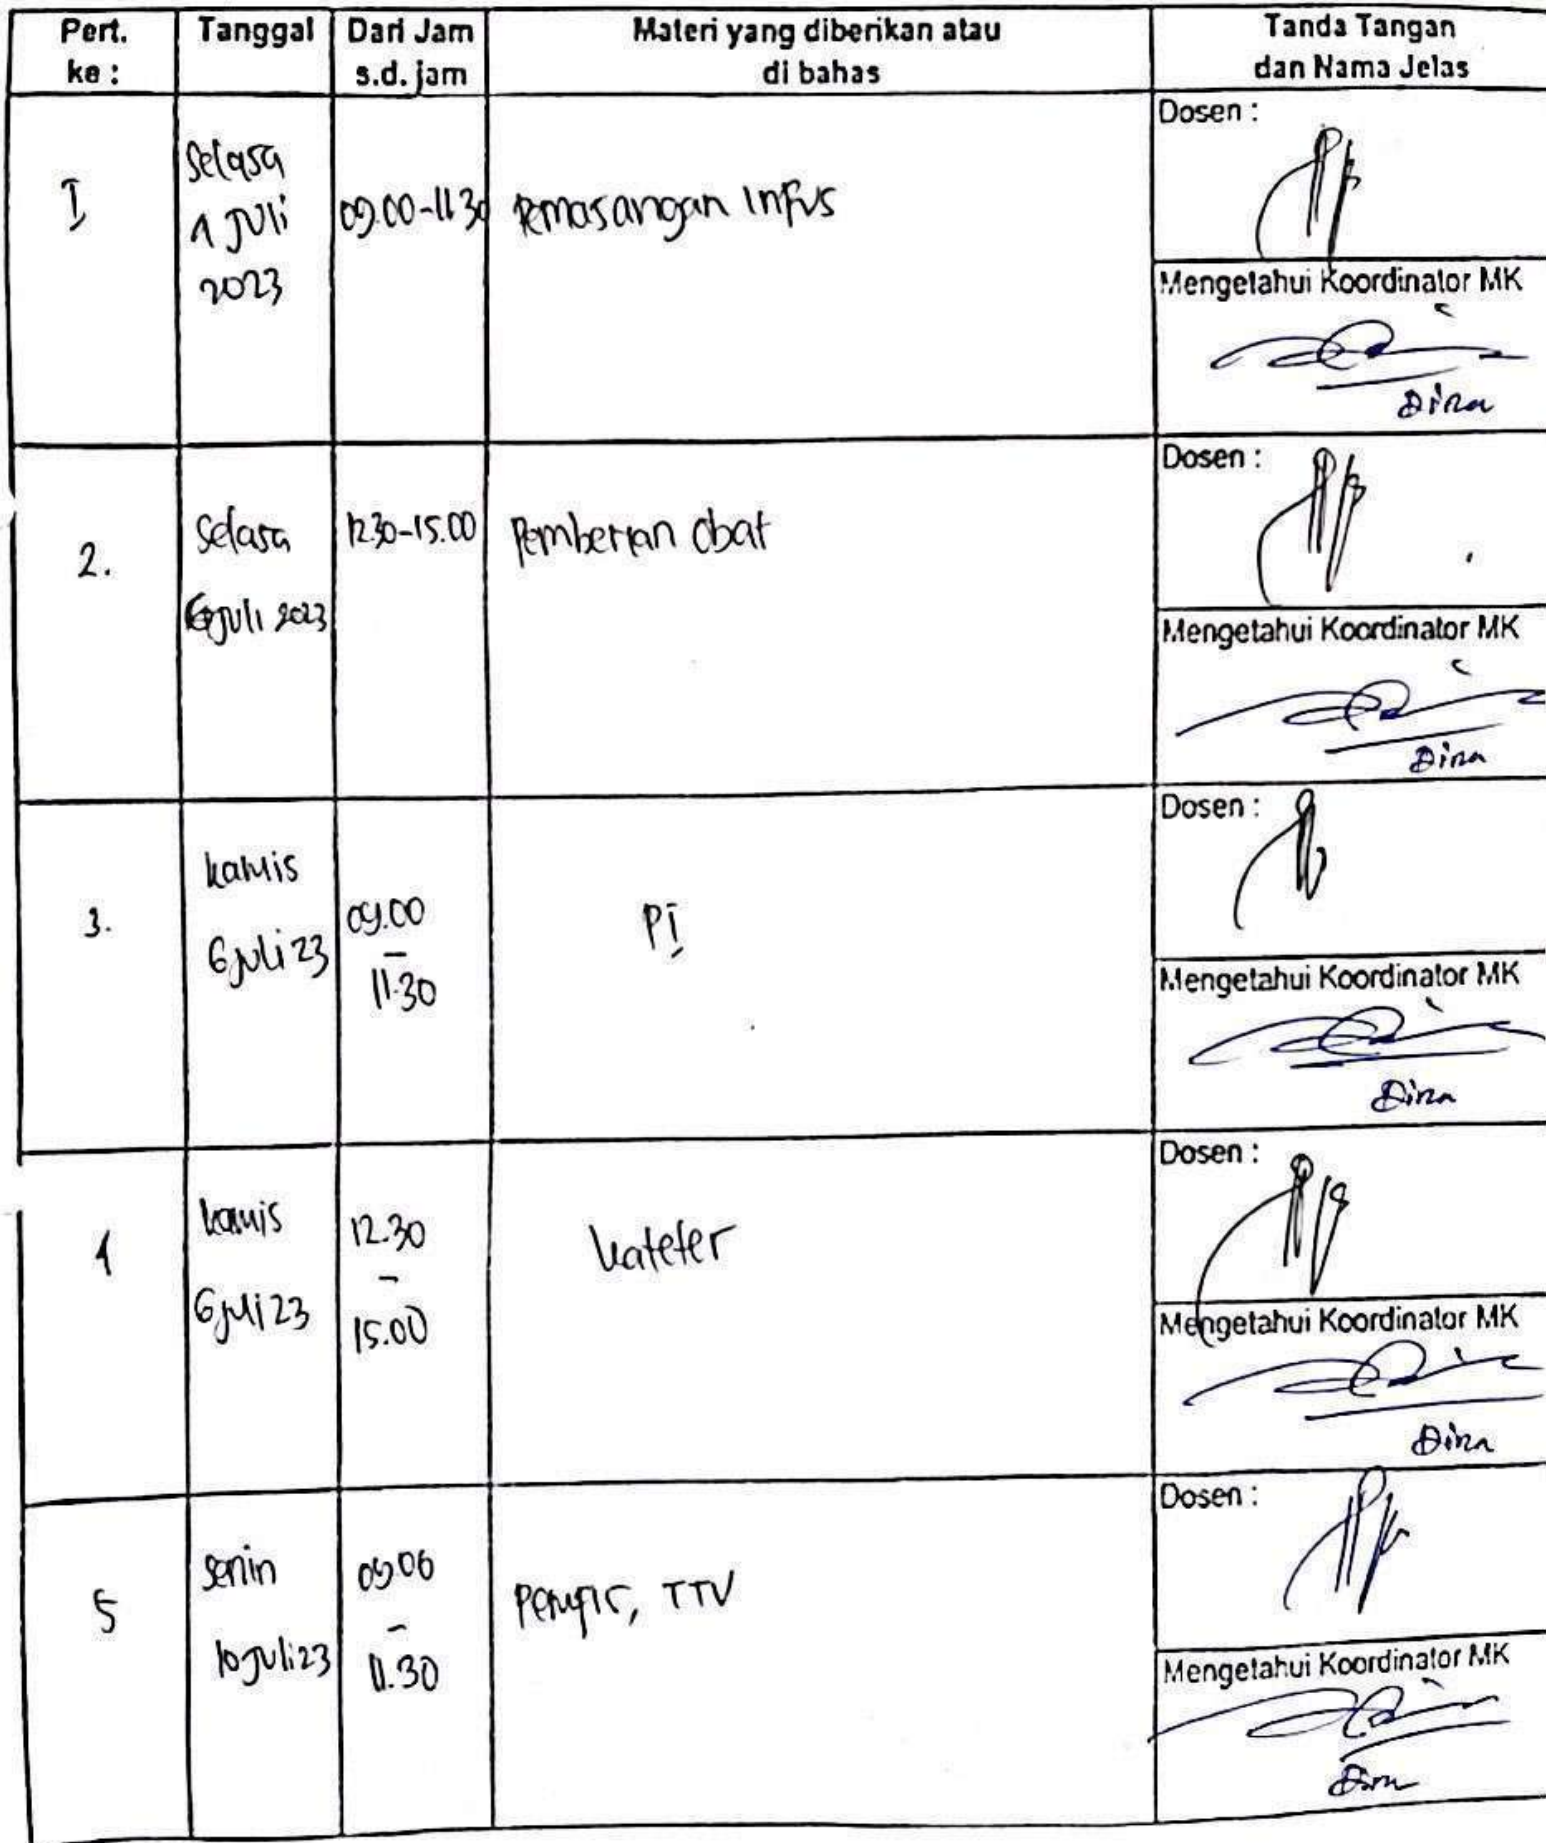 Pert. ke :
Tanggal
Dari Jam s.d. jam
Materi yang diberikan atau di bahas
Tanda Tangan dan Nama Jelas
I
Selasa
1 Juli
2023
09.00-11 30
Pemasangan Infus
Dosen :
Mengetahui Koordinator MK
Dina
2.
Selasa
Juli 2023
12.30-15.00
Pemberian Obat
Dosen :
Mengetahui Koordinator MK
Dina
3.
kamis
6 juli 23
09.00
-
11.30
PI
Dosen :
Mengetahui Koordinator MK
Dina
4
kamis
6 juli 23
12.30
-
15.00
kateter
Dosen :
Mengetahui Koordinator MK
Dina
5
Senin
10 Juli 23
-
11.30
TTV
Dosen :
Mengetahui Koordinator MK
Dina